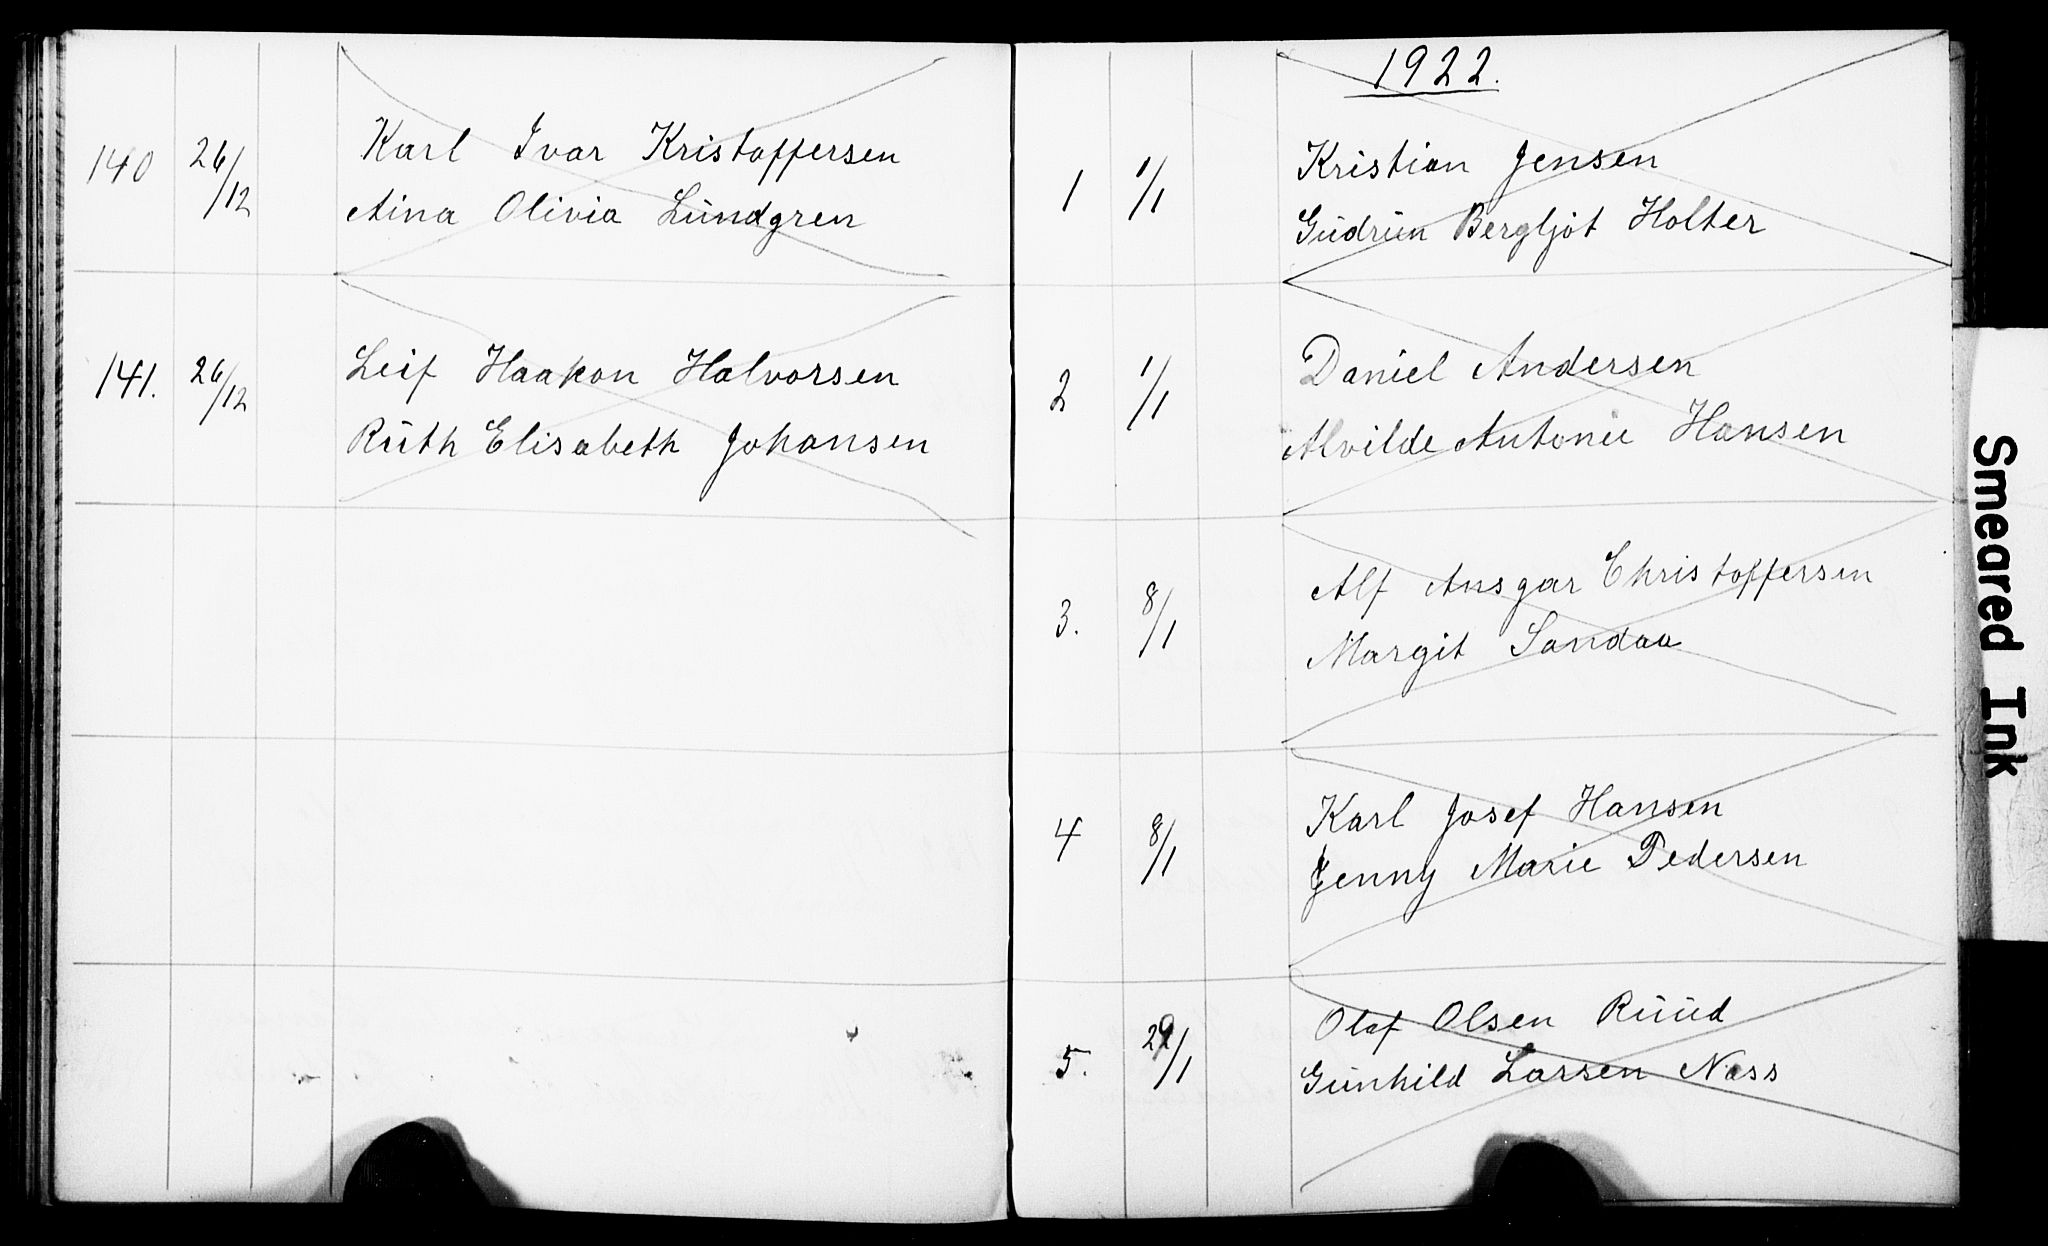 140 26/12 Karl Ivar Kristoffersen
Aina Olivia Lundgren
141. 26/12 Leif Haakon Halvorsen
Ruth Elisabeth Johansen
1922.
1 1/1 Kristian Jensen
Gudrun Bergljot Holter
2 1/1 Daniel Andersen
Alvilde Antonie Hansen
3. 8/1 Alf Ansgar Christoffersen
Margit Sandaa
4 8/1 Karl Josef Hansen
Jenny Marie Pedersen
5. 29/1 Olaf Olsen Ruud
Gunhild Larsen Næss
Smeared Ink